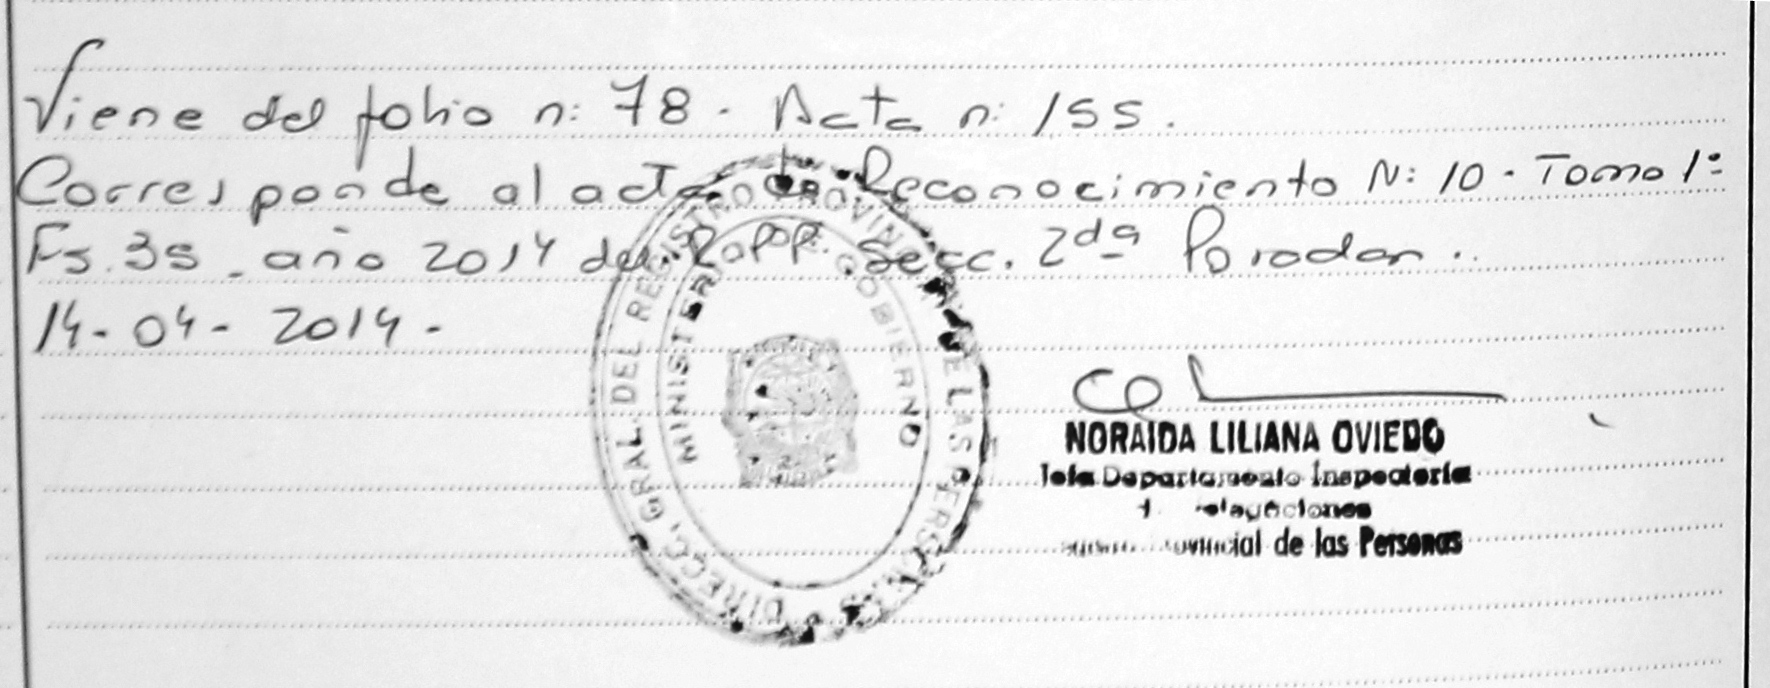 Viene del folio n: 78. Acta n: 155.
Corresponde al acta de Reconocimiento N: 10 - Tomo 1º
Fs. 35 - año 2014 del R.P.P. Secc. 2da Posadas.
14-04-2014-
DIRECC. GRAL. DEL REGISTRO PROVINCIAL DE LAS PERSONAS
MINISTERIO GOBIERNO
NORAIDA LILIANA OVIEDO
Jefa Departamento Inspectoría
Delegaciones
Provincial de las Personas